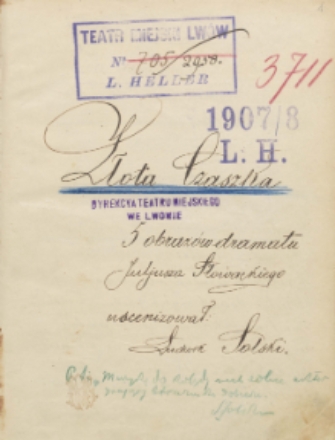 TEATR MIEJSKI LWÓW
Nº 705/2958.
L. HELLER
3711
1907/8
L. H.
Złota Czaszka
DYREKCYA TEATRU MIEJSKIEGO
WE LWOWIE
5 obrazów dramatu
Juljusza Słowackiego
uscenizował
Ludwik Solski.